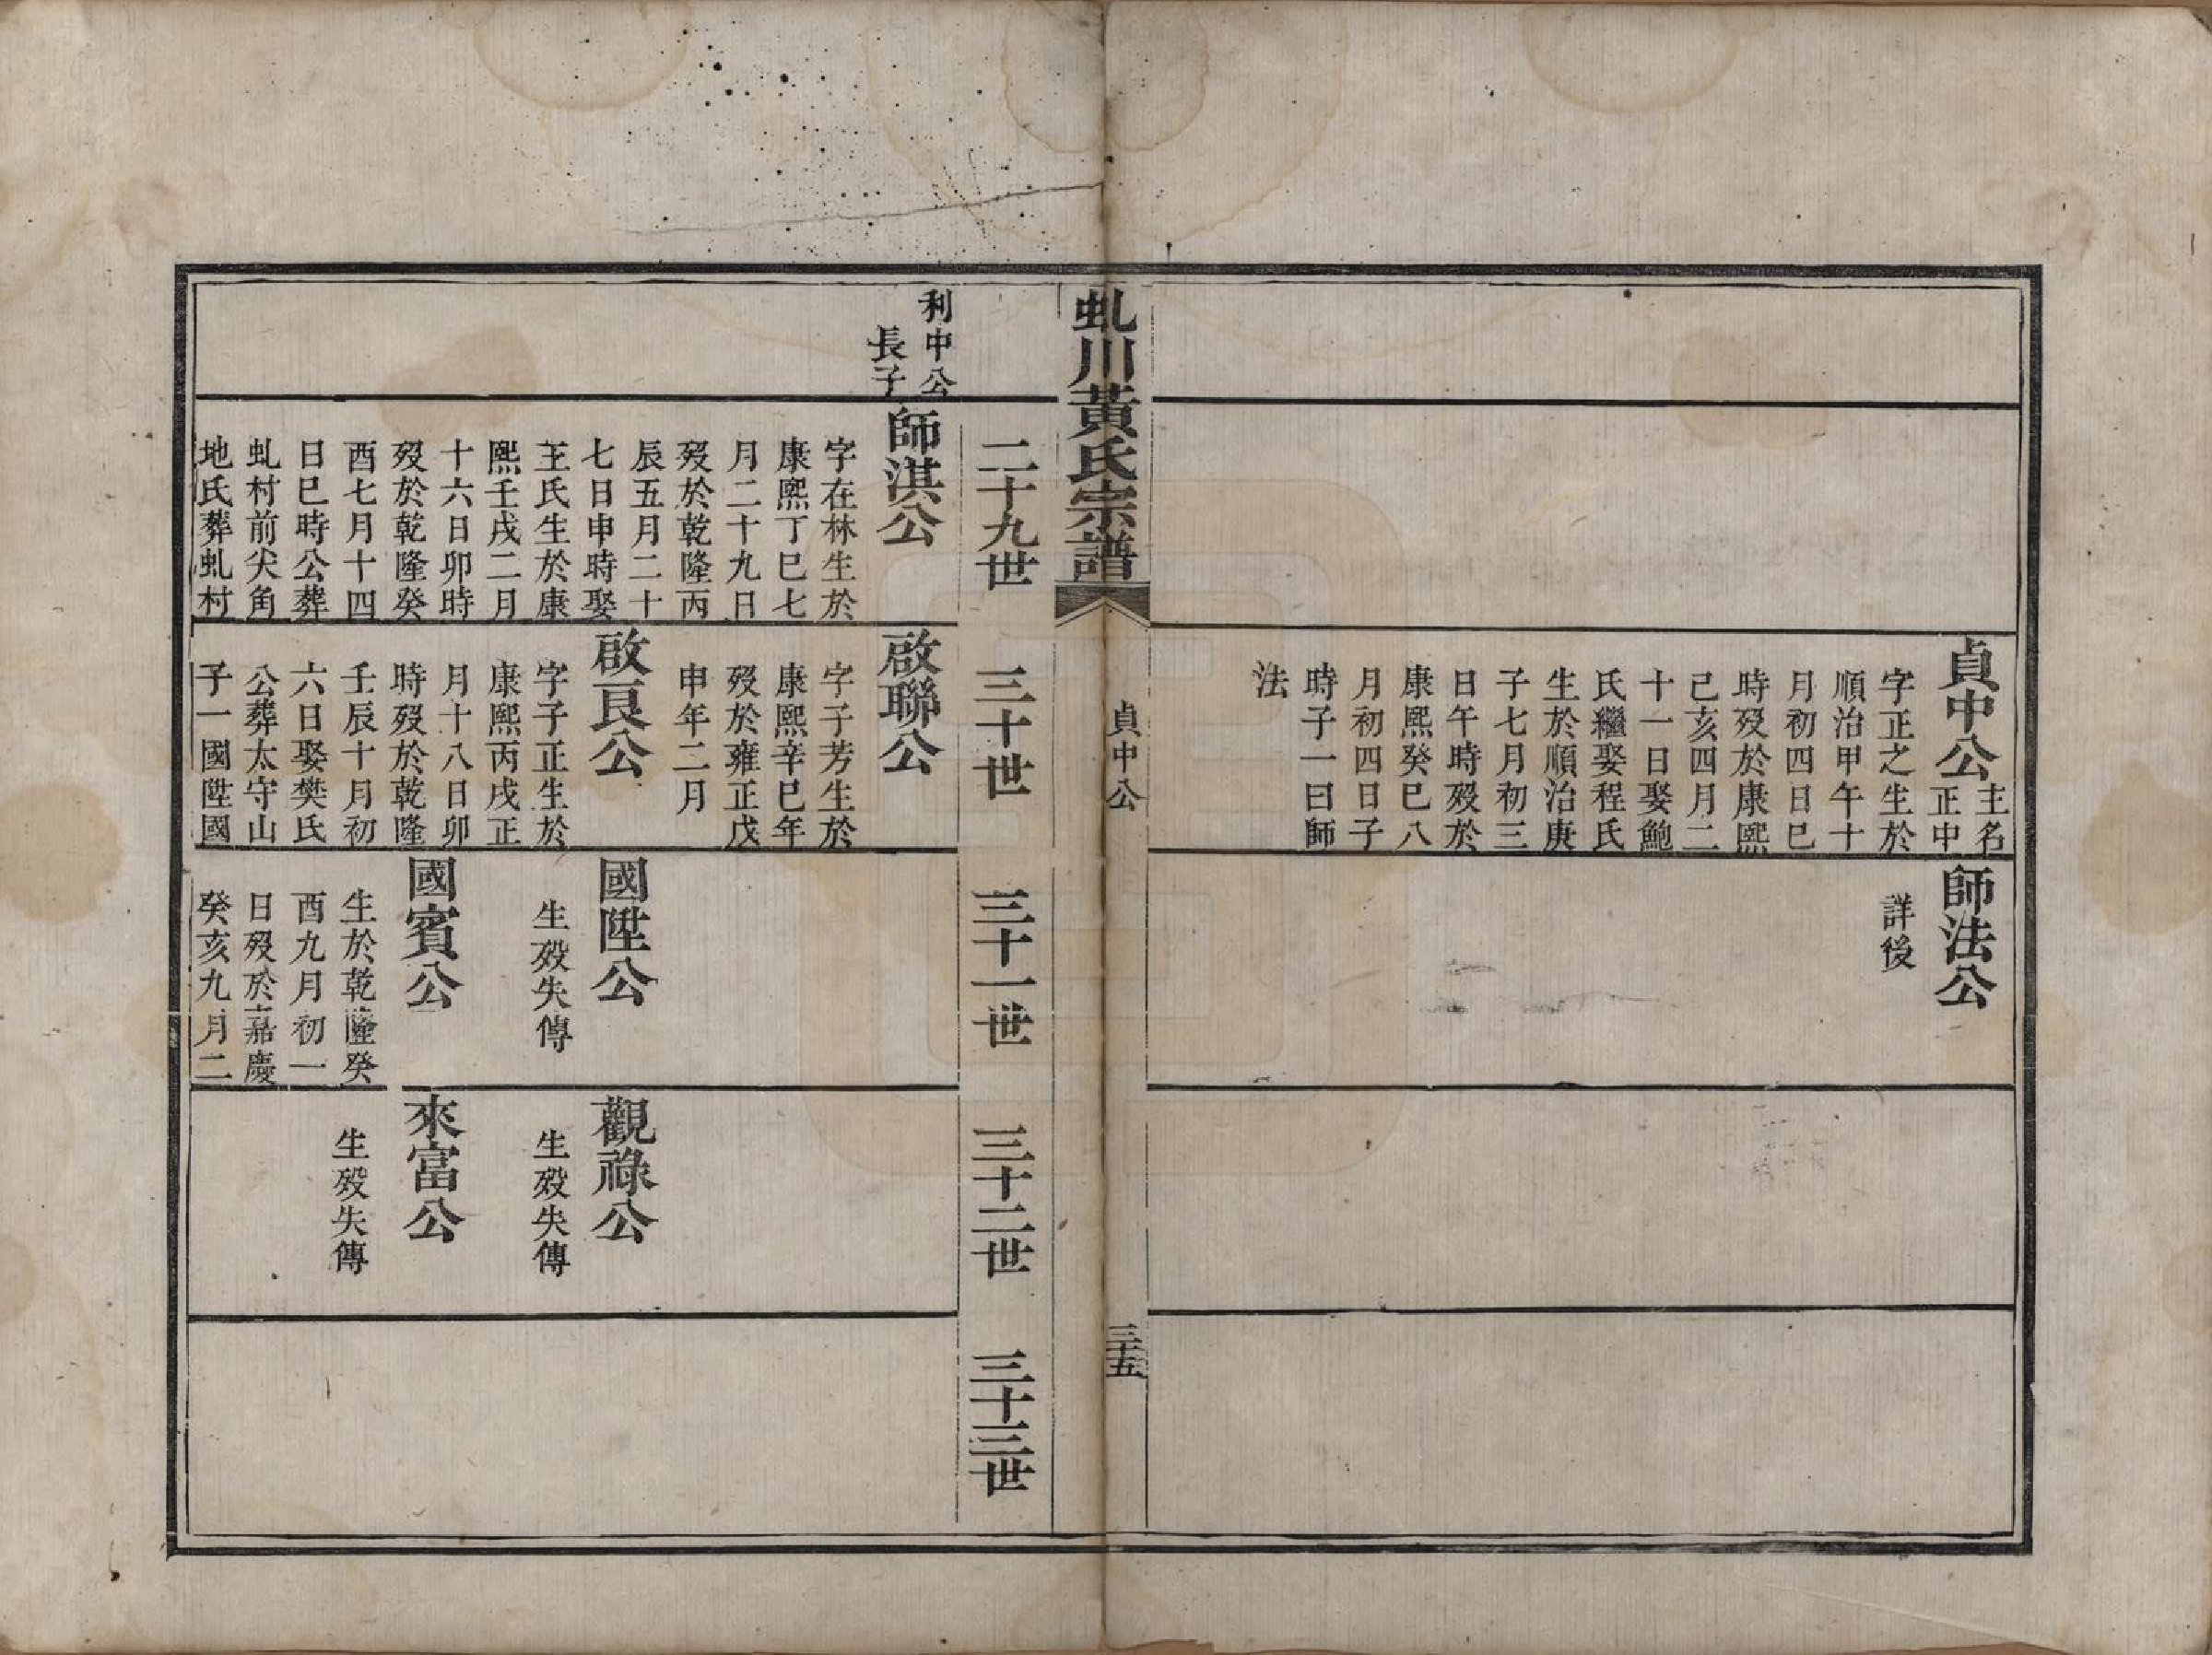 貞中公主名
正中
字正之生於
順治甲午十
月初四日巳
時歿於康熙
己亥四月二
十一日娶鮑
氏繼娶程氏
生於順治庚
子七月初三
日午時歿於
康熙癸巳八
月初四日子
時子一曰師
法
師法公
詳後
虬川黃氏宗譜
貞中公
三十五
二十九世
三十世
三十一世
三十二世
三十三世
利中公
長子
師淇公
字在林生於
康熙丁巳七
月二十九日
歿於乾隆丙
辰五月二十
七日申時娶
王氏生於康
熙壬戌二月
十六日卯時
歿於乾隆癸
酉七月十四
日巳時公葬
虬村前尖角
地氏葬虬村
啟聯公
字子芳生於
康熙辛巳年
歿於雍正戊
申年二月
啟良公
字子正生於
康熙丙戌正
月十八日卯
時歿於乾隆
壬辰十月初
六日娶樊氏
公葬太守山
子一國陞國
國陞公
生歿失傳
國賓公
生於乾隆癸
酉九月初一
日歿於嘉慶
癸亥九月二
觀祿公
生歿失傳
來富公
生歿失傳